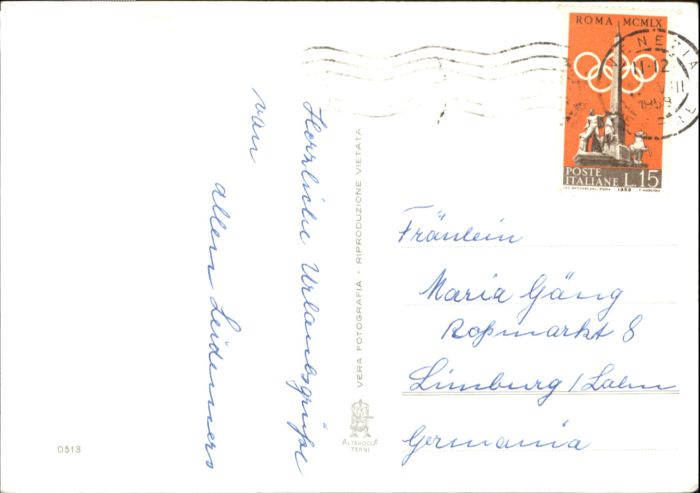 Herzliche Urlaubsgrüße
von
allen Leidemers
VERA FOTOGRAFIA - RIPRODUZIONE VIETATA
ALTEROCCA
TERNI
0513
ROMA MCMLX
POSTE
ITALIANE L.15
1959
VENEZIA
11-12
VIII
1959
Fräulein
Maria Gäng
Roßmarkt 8
Limburg/Lahn
Germania